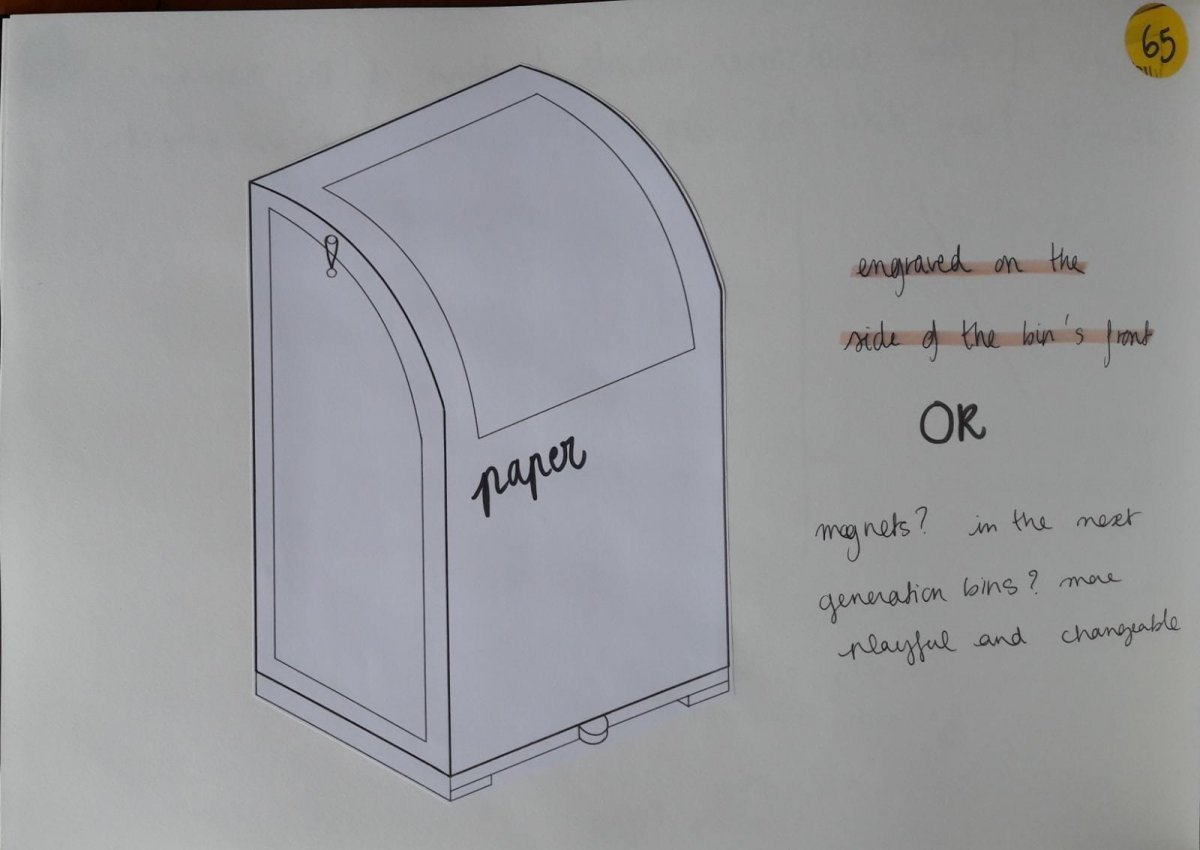 65
paper
engraved on the
side of the bin's front
OR
magnets? in the next
generation bins? more
playful and changeable